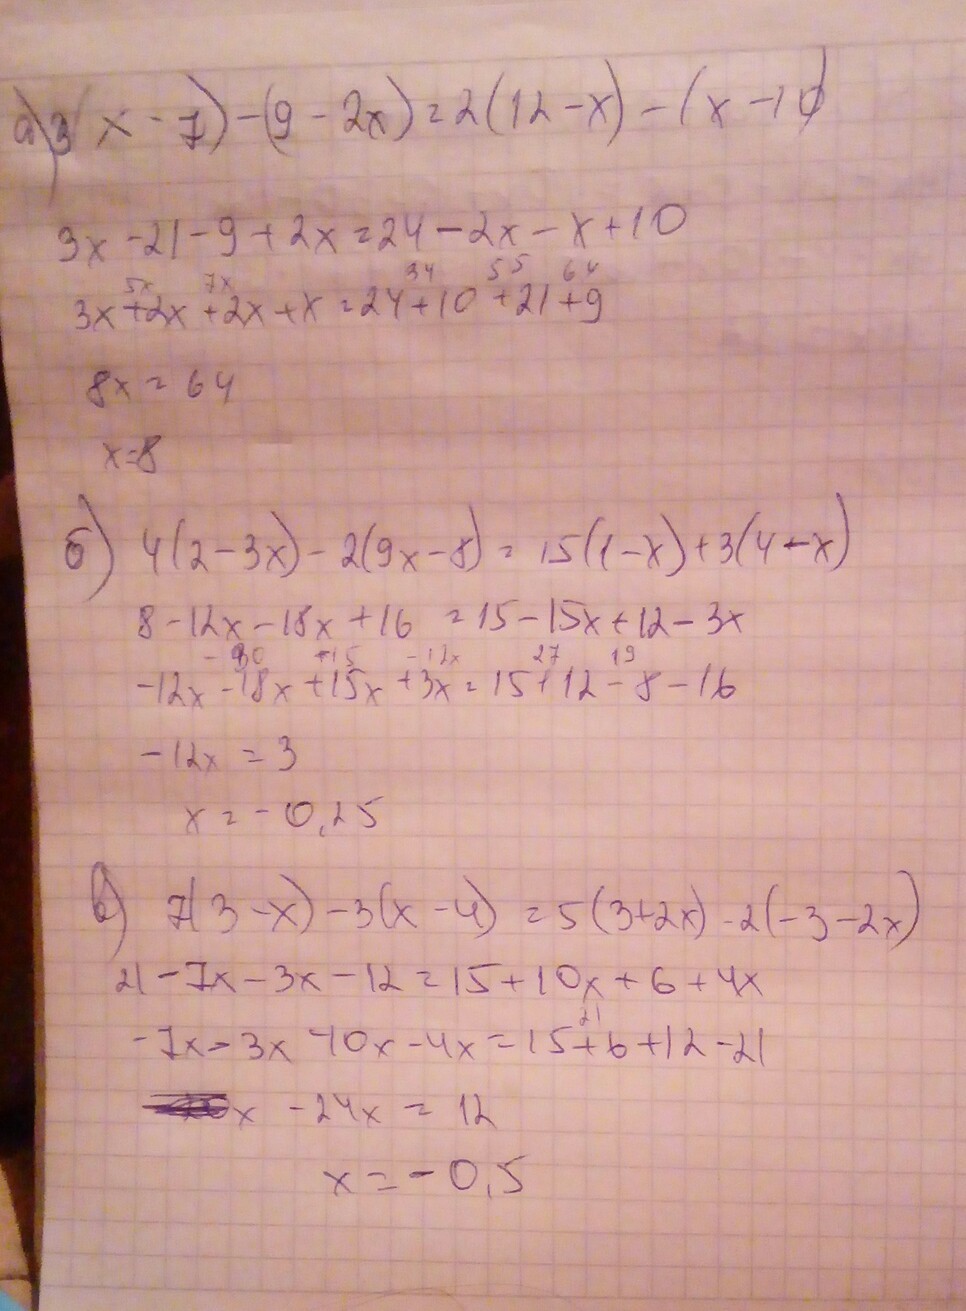 а) 3(x-7)-(9-2x)=2(12-x)-(x-10)
3x-21-9+2x=24-2x-x+10
5x 7x 34 55 64
3x+2x+2x+x=24+10+21+9
8x=64
x=8
б) 4(2-3x)-2(9x-8)=15(1-x)+3(4-x)
8-12x-18x+16=15-15x+12-3x
-30 +15 -12x 27 19
-12x-18x+15x+3x=15+12-8-16
-12x=3
x=-0,25
в) 7(3-x)-3(x-4)=5(3+2x)-2(-3-2x)
21-7x-3x-12=15+10x+6+4x
21
-7x-3x-10x-4x=15+6+12-21
x -24x=12
x=-0,5